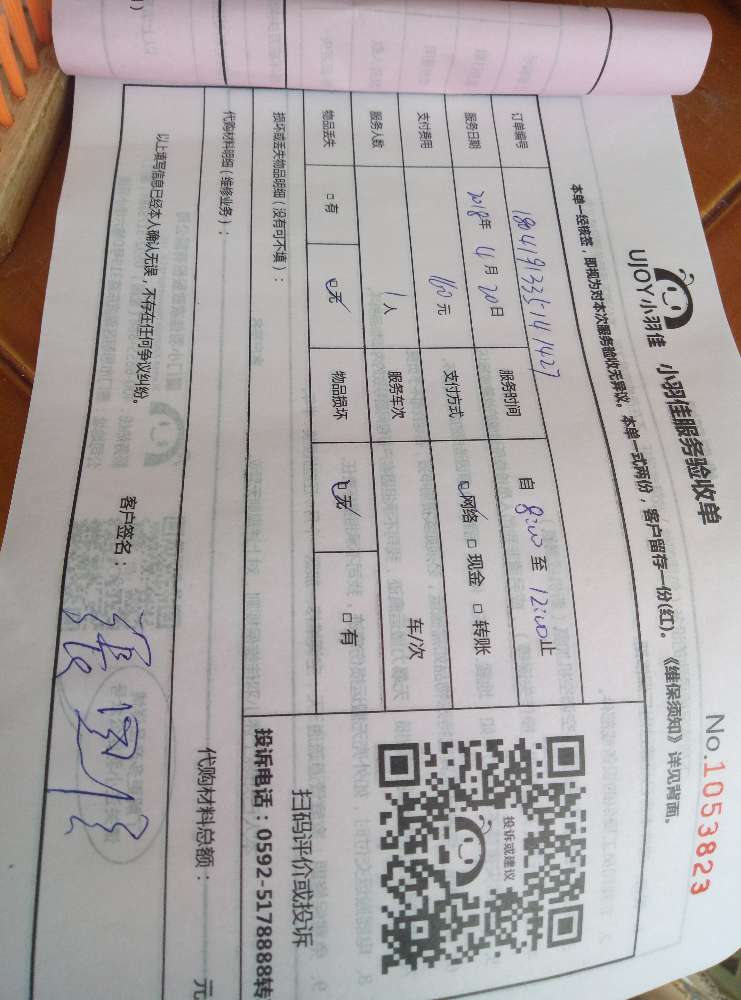 UJOY小羽佳 小羽佳服务验收单
No.1053823
本单一经核签，即视为对本次服务验收无异议。本单一式两份，客户留存一份(红)。《维保须知》详见背面。
订单编号 180419133514 1427 服务时间 自 8:00 至 12:00 止
服务日期 2018年 4月 20日 支付方式 网络 现金 转账
支付费用 160 元
服务人数 1 人 服务车次 车/次
物品丢失 有 无 物品损坏 无 有
损坏或丢失物品明细（没有可不填）：
代购材料明细（维修业务）：
代购材料总额： 元
投诉或建议
扫码评价或投诉
投诉电话：0592-5178888转
以上填写信息已经本人确认无误，不存在任何争议纠纷。 客户签名：